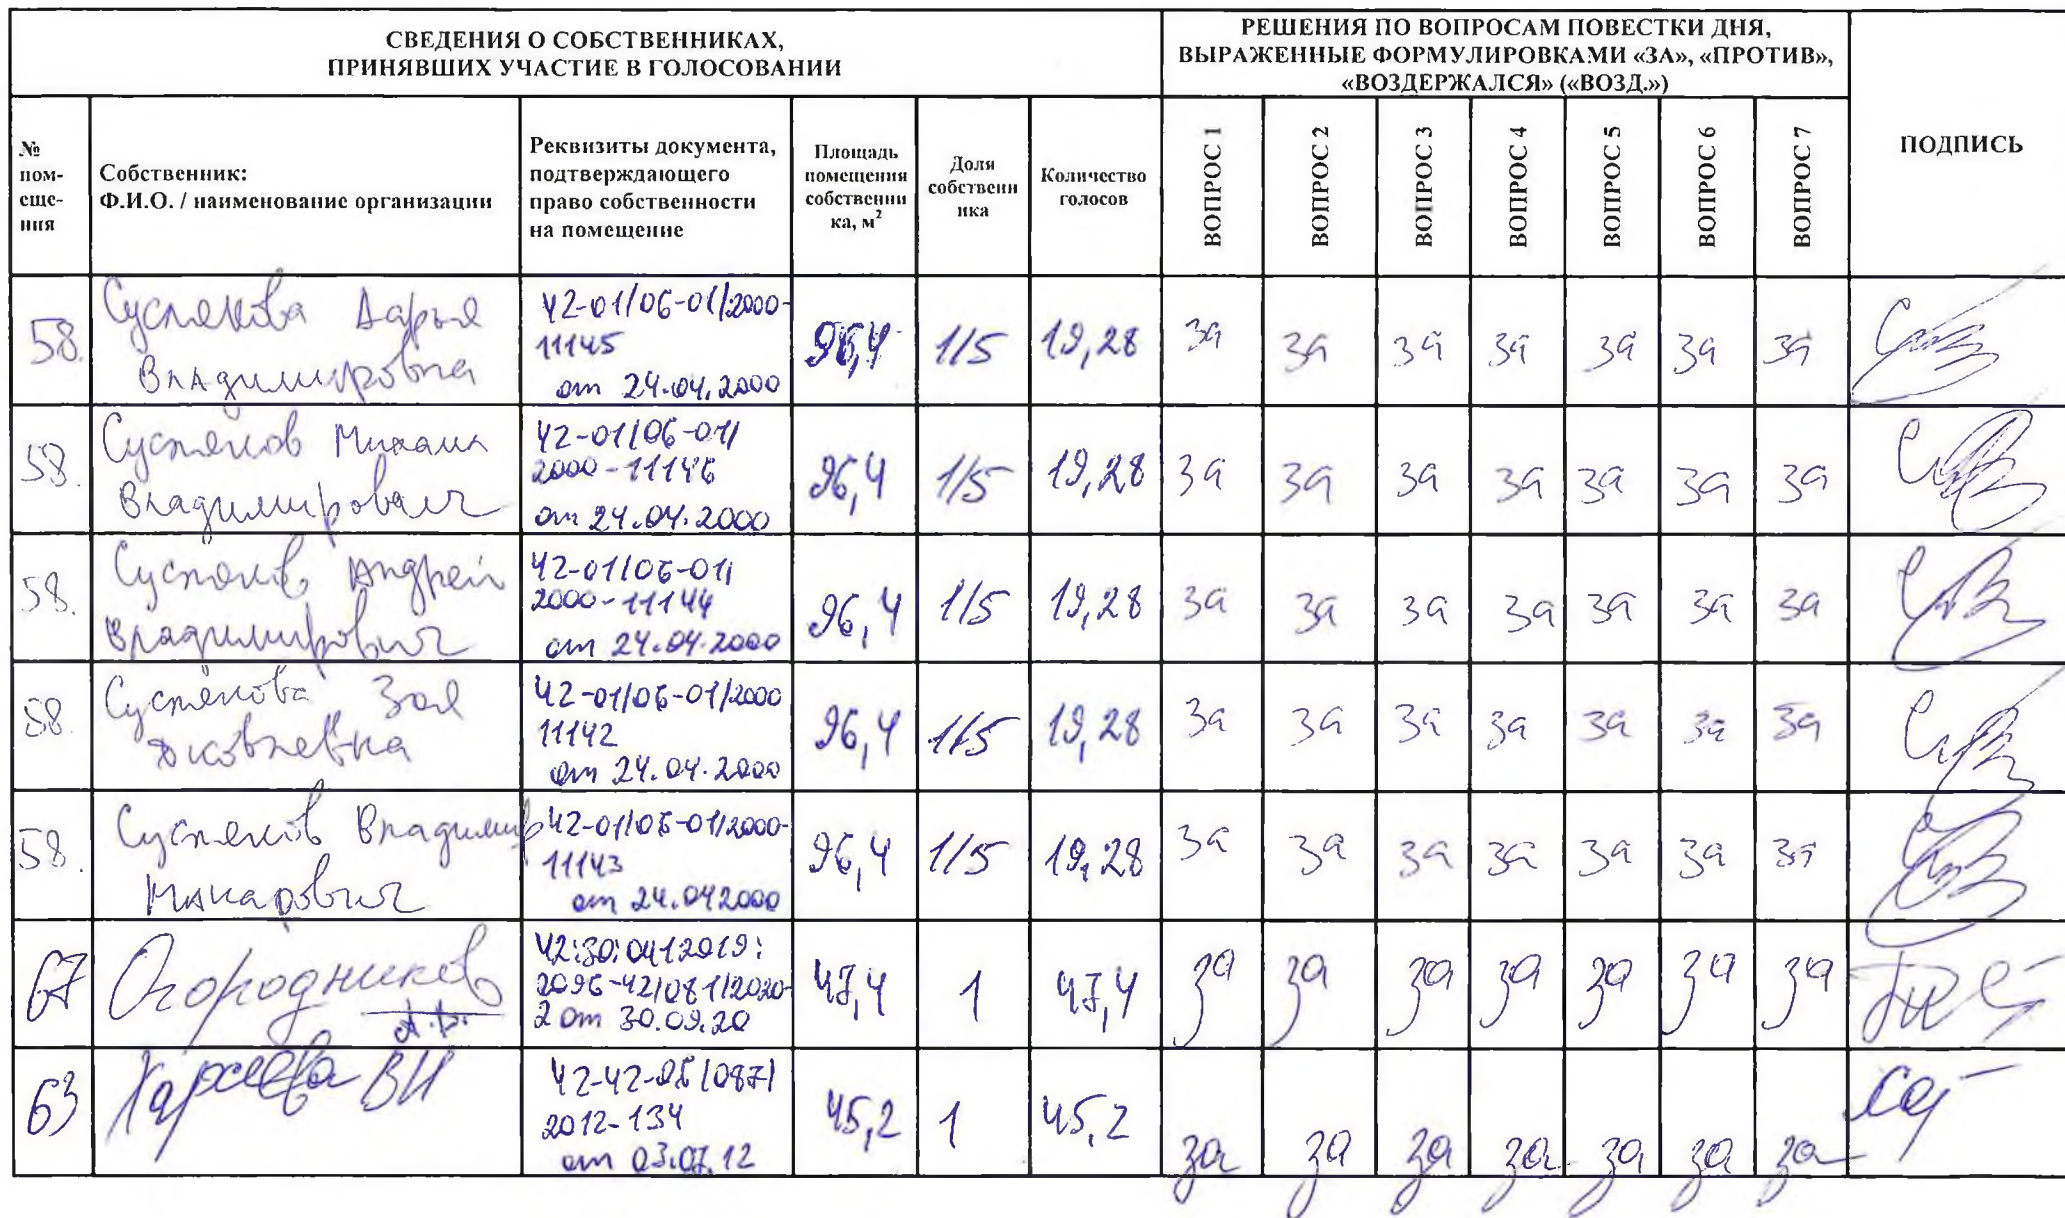 СВЕДЕНИЯ О СОБСТВЕННИКАХ,
ПРИНЯВШИХ УЧАСТИЕ В ГОЛОСОВАНИИ
РЕШЕНИЯ ПО ВОПРОСАМ ПОВЕСТКИ ДНЯ,
ВЫРАЖЕННЫЕ ФОРМУЛИРОВКАМИ «ЗА», «ПРОТИВ»,
«ВОЗДЕРЖАЛСЯ» («ВОЗД.»)
ПОДПИСЬ
№
пом-
еще-
ния
Собственник:
Ф.И.О. / наименование организации
Реквизиты документа,
подтверждающего
право собственности
на помещение
Площадь
помещения
собственни
ка, м²
Доля
собственн
ика
Количество
голосов
ВОПРОС 1
ВОПРОС 2
ВОПРОС 3
ВОПРОС 4
ВОПРОС 5
ВОПРОС 6
ВОПРОС 7
58.
Суслякова Дарья
Владимировна
42-01/06-01/2000-
11145
от 24.04.2000
96,4
1/5
19,28
за за за за за за за
58.
Сусляков Михаил
Владимирович
42-01/06-01/
2000-11146
от 24.04.2000
96,4
1/5
19,28
за за за за за за за
58.
Сусляков Андрей
Владимирович
42-01/06-01/
2000-11144
от 24.04.2000
96,4
1/5
19,28
за за за за за за за
58.
Суслякова Зоя
Яковлевна
42-01/06-01/2000
11142
от 24.04.2000
96,4
1/5
19,28
за за за за за за за
58.
Сусляков Владимир
Макарович
42-01/06-01/2000-
11143
от 24.042000
96,4
1/5
19,28
за за за за за за за
67
Огородников
А.В.
42:30:0412019:
2096-42/081/2020-
2 от 30.09.20
47,4
1
47,4
за за за за за за за
63
ВИ
42-42-06/087/
2012-134
от 03.07.12
45,2
1
45,2
за за за за за за за